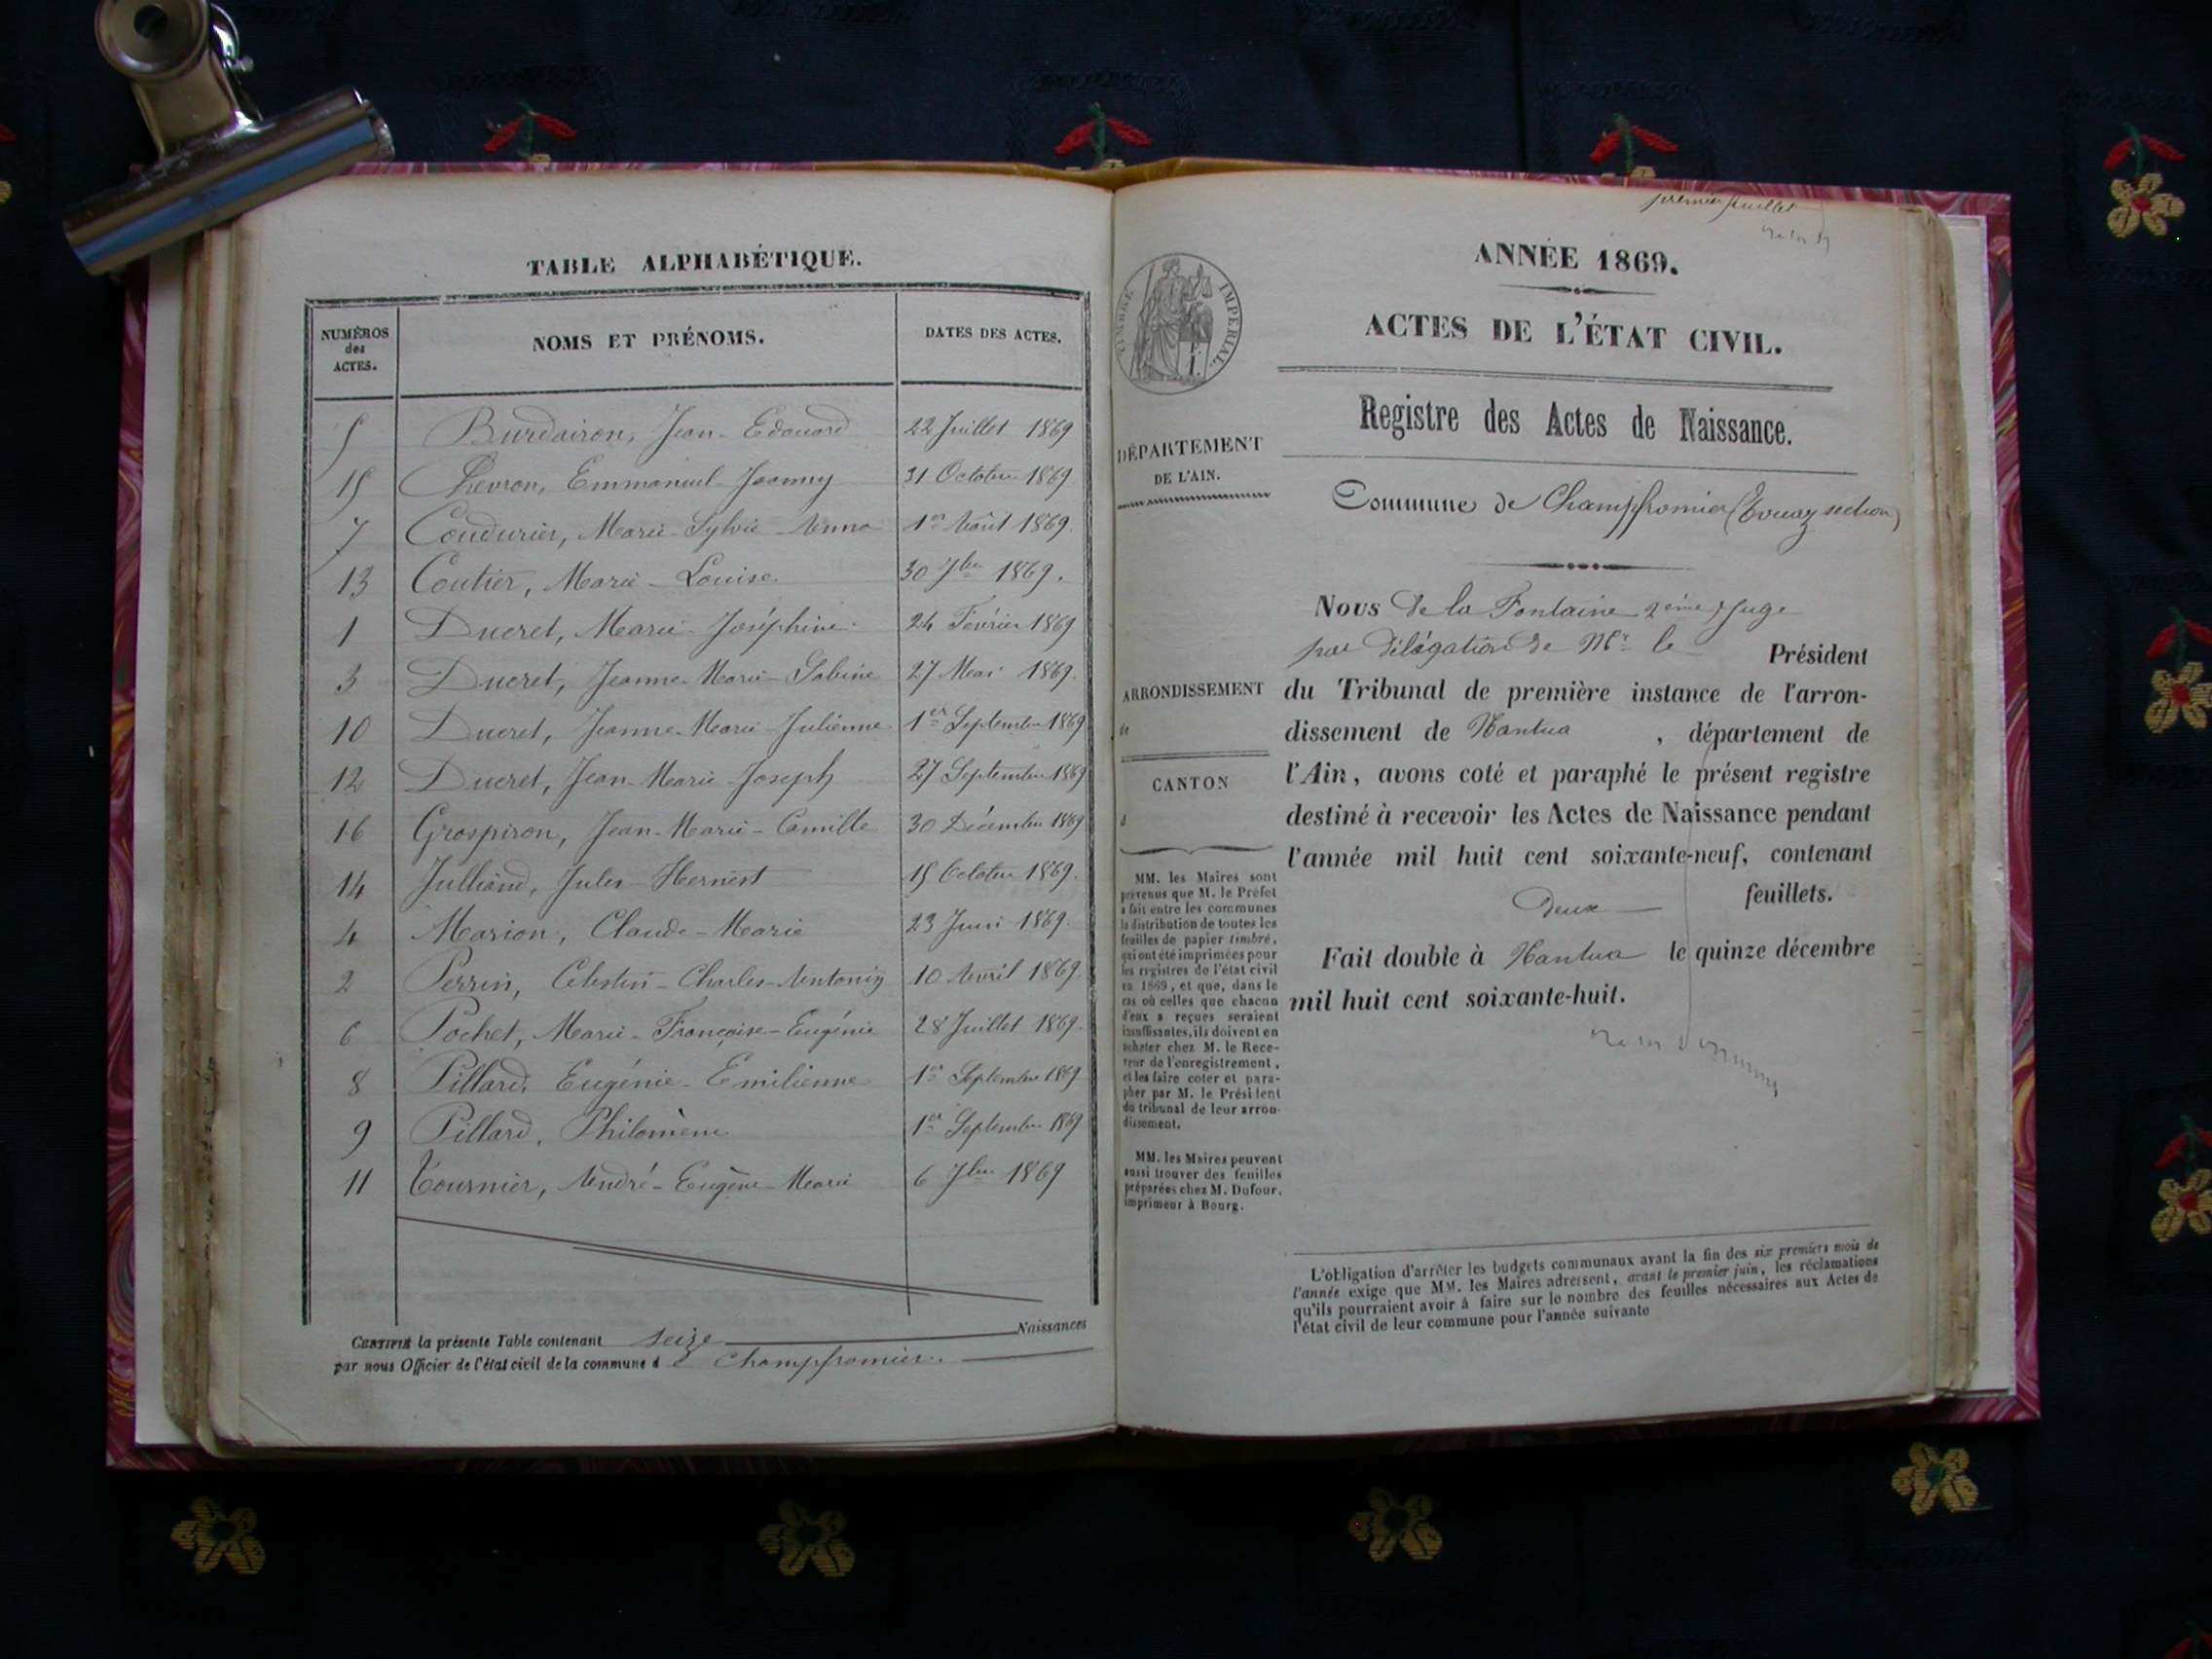 TABLE ALPHABÉTIQUE.
NUMÉROS
des
ACTES.
NOMS ET PRÉNOMS.
DATES DES ACTES.
5 Burdairon, Jean-Edouard 22 Juillet 1869
15 Chevron, Emmanuel Joanny 31 Octobre 1869
7 Coudurier, Marie-Sylvie-Anna 1er Août 1869.
13 Coutier, Marie-Louise 30 7bre 1869.
1 Ducret, Marie-Joséphine 24 Février 1869
3 Ducret, Jeanne-Marie-Sabine 27 Mai 1869.
10 Ducret, Jeanne-Marie-Julienne 1er Septembre 1869
12 Ducret, Jean-Marie-Joseph 27 Septembre 1869
16 Grospiron, Jean-Marie-Camille 30 Décembre 1869
14 Julliand, Jules-Hernest 15 Octobre 1869.
4 Marion, Claude-Marie 23 Juin 1869.
2 Perrin, Celestin-Charles-Antonin 10 Avril 1869.
6 Pochet, Marie-Françoise-Eugénie 28 Juillet 1869.
8 Pillard, Eugénie-Emilienne 1er Septembre 1869
9 Pillard, Philomène 1er Septembre 1869
11 Tournier, André-Eugène-Marie 6 7bre 1869
CERTIFIÉ la présente Table contenant seize Naissances
par nous Officier de l'état civil de la commune d e Champfromier.
premier feuillet
TIMBRE IMPÉRIAL.
ANNÉE 1869.
ACTES DE L'ÉTAT CIVIL.
Registre des Actes de Naissance.
DÉPARTEMENT
DE L'AIN.
Commune de Champfromier (Evuaz section)
ARRONDISSEMENT
de
CANTON
d
MM. les Maires sont
prévenus que M. le Préfet
a fait entre les communes
la distribution de toutes les
feuilles de papier timbré,
qui ont été imprimées pour
les registres de l'état civil
en 1869, et que, dans le
cas où celles que chacun
d'eux a reçues seraient
insuffisantes, ils doivent en
acheter chez M. le Rece-
veur de l'enregistrement,
et les faire coter et para-
pher par M. le Président
du tribunal de leur arron-
dissement.
MM. les Maires peuvent
aussi trouver des feuilles
préparées chez M. Dufour,
imprimeur à Bourg.
Nous de la Fontaine 2ème Juge
par délégation de Mr le Président
du Tribunal de première instance de l'arron-
dissement de Nantua , département de
l'Ain, avons coté et paraphé le présent registre
destiné à recevoir les Actes de Naissance pendant
l'année mil huit cent soixante-neuf, contenant
Deux feuillets.
Fait double à Nantua le quinze décembre
mil huit cent soixante-huit.
L'obligation d'arrêter les budgets communaux avant la fin des six premiers mois de
l'année exige que MM. les Maires adressent, avant le premier juin, les réclamations
qu'ils pourraient avoir à faire sur le nombre des feuilles nécessaires aux Actes de
l'état civil de leur commune pour l'année suivante